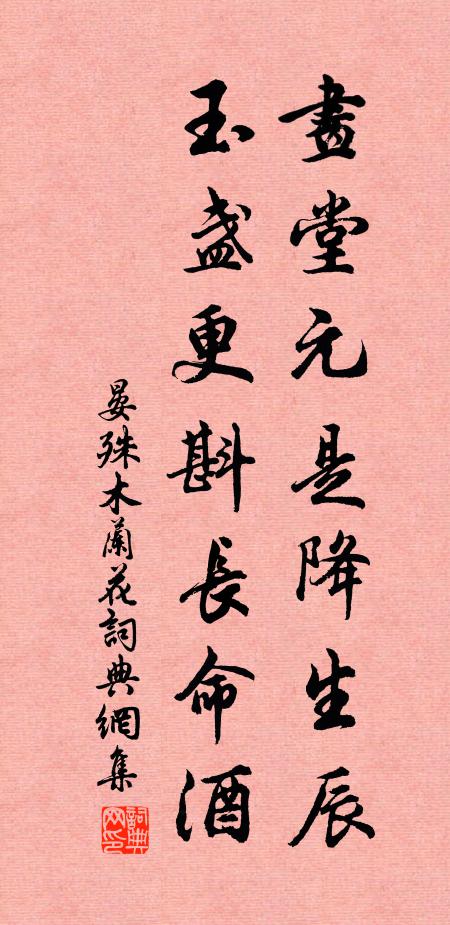 畫堂元是降生辰
玉盏更斟長命酒
晏殊木蘭花詞典網集
詞典网印